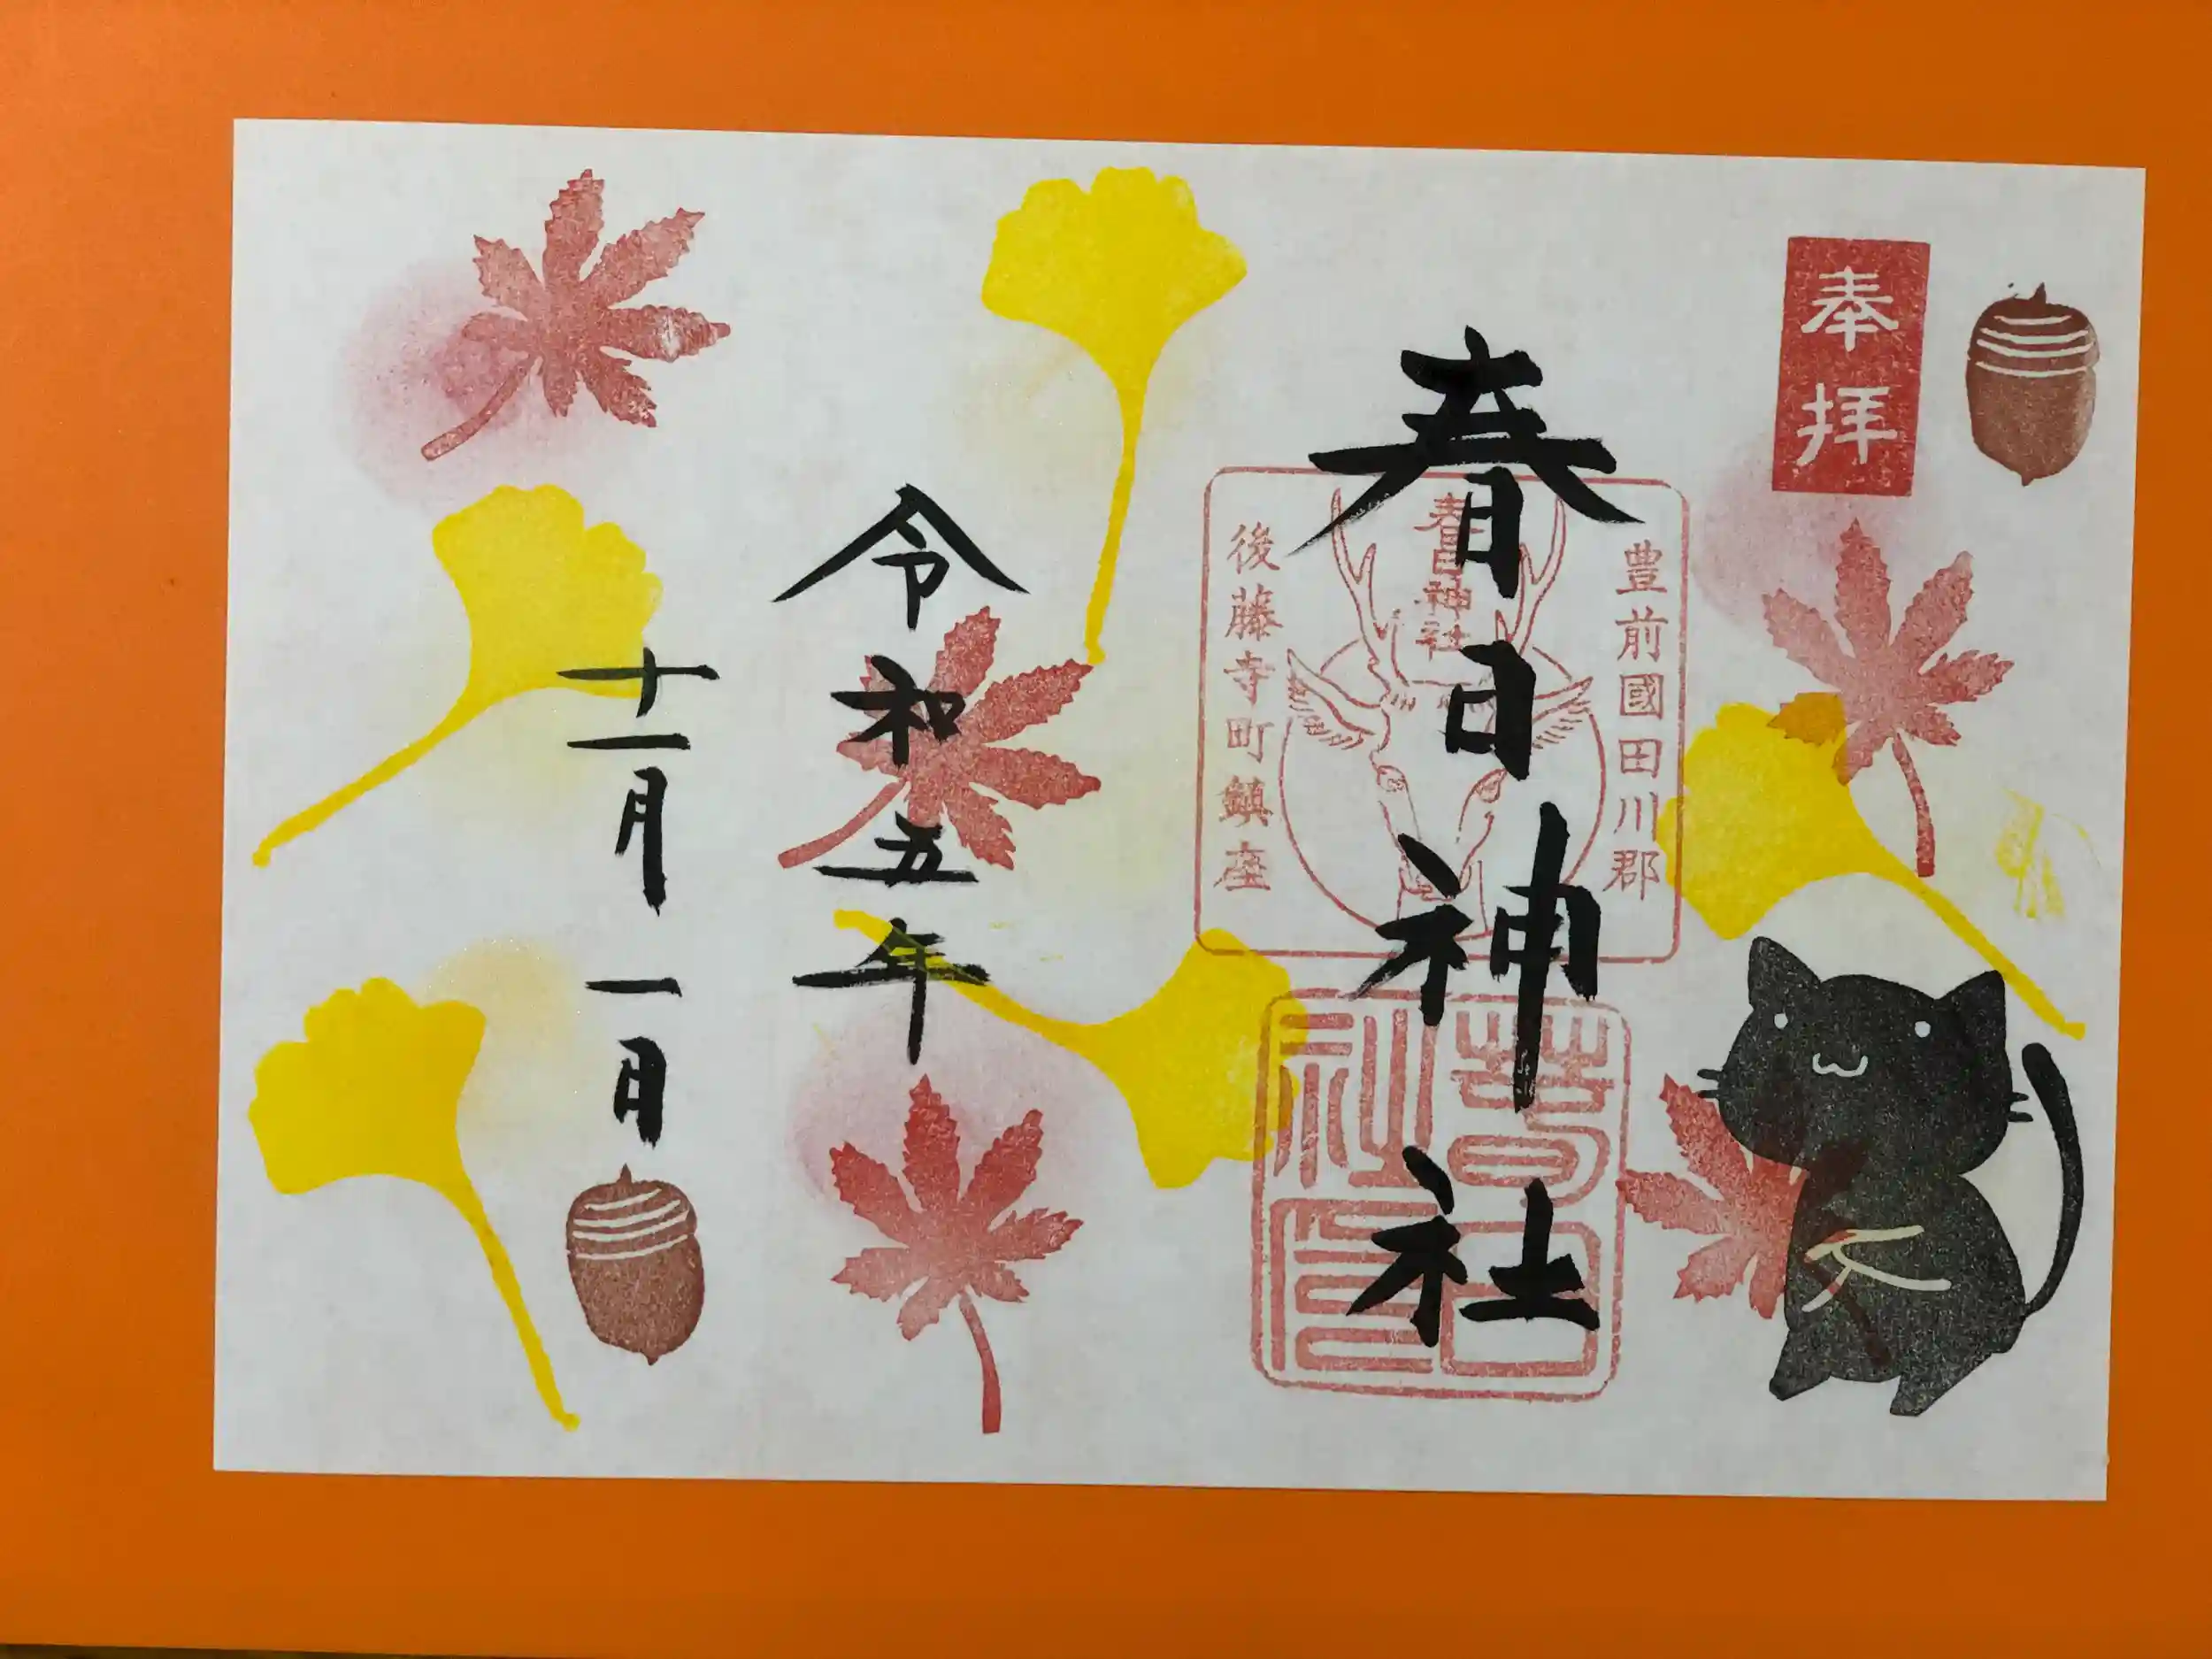 奉拝
豊前國田川郡
春日神社
春日神社
後藤寺町鎮座
令和五年
十一月一日